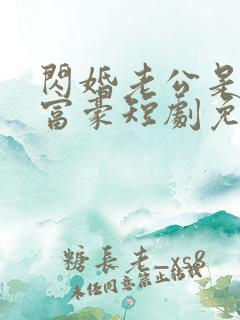 閃婚老公是
富豪短劇免
糖長老_xs8
未任同意禁止轉載